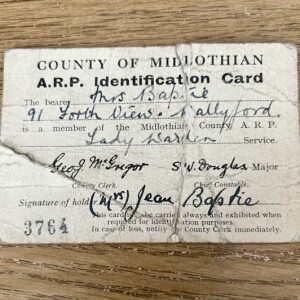 COUNTY OF MIDLOTHIAN
A.R.P. Identification Card
The bearer Mrs Baptie
91 Forth View. Wallyford.
is a member of the Midlothian County A. R. P.
Lady Warden Service.
Geo. J. McGregor S. W. Douglas Major
County Clerk. Chief Constable.
Signature of holder (Mrs) Jean Baptie
This card must be carried always and exhibited when
required for identification purposes.
In case of loss, notify County Clerk immediately.
3764